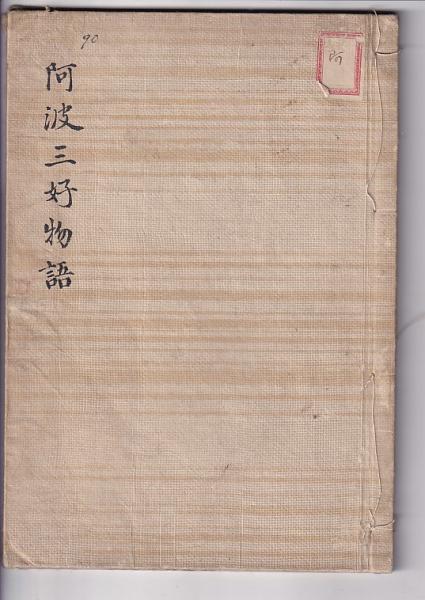 90
阿波三好物語
阿